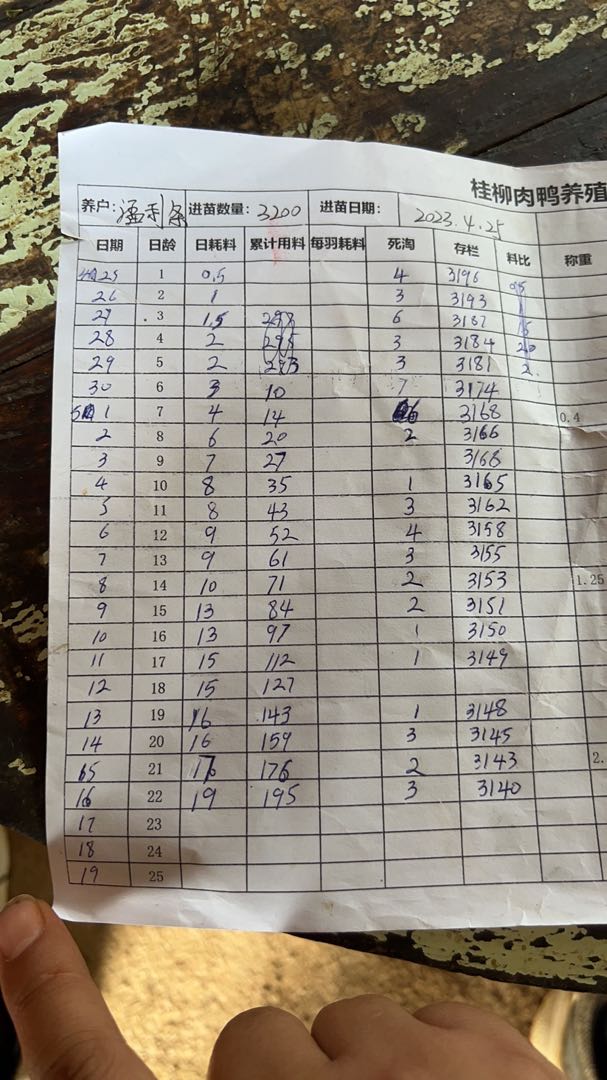 桂柳肉鸭养殖
养户: 进苗数量:3200 进苗日期: 2023.4.25
日期 日龄 日耗料 累计用料 每羽耗料 死淘 存栏 料比 称重
25 1 0.5 4 3196 0.5
26 2 1 3 3193 1
27 3 1.5 6 3187 1.5
28 4 2 295 3 3184 2.0
29 5 2 293 3 3181 2.
30 6 3 10 7 3174
1 7 4 14 6 3168 0.4
2 8 6 20 2 3166
3 9 7 27 3168
4 10 8 35 1 3165
5 11 8 43 3 3162
6 12 9 52 4 3158
7 13 9 61 3 3155
8 14 10 71 2 3153 1.25
9 15 13 84 2 3151
10 16 13 97 1 3150
11 17 15 112 1 3149
12 18 15 127
13 19 16 143 1 3148
14 20 16 159 3 3145
15 21 17 176 2 3143 2.
16 22 19 195 3 3140
17 23
18 24
19 25